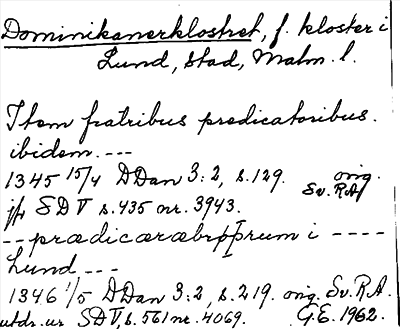 Dominikanerklostret, f. kloster i
Lund, stad, Malm. l.
Item fratribus predicatoribus.
ibidem. ---
1345 15/4 DDan 3:2, s. 129. orig. Sv. R.A.
jfr SD V s. 435 nr. 3943.
-- prædicæræbrøþrum i ----
Lund ---
1346 1/5 DDan 3:2, s. 219. orig. Sv. R.A.
utdr. ur SD V, s. 561 nr. 4069. G.E. 1962.